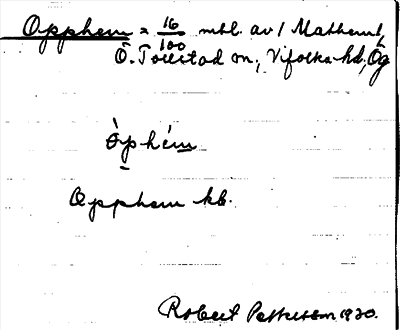 Opphem = 16/100 mtl. av 1 Mathem,
Ö. Tollstad sn., Vifolka hd, Ög
òphém
Opphem kb.
Robert Pettersson 1920.